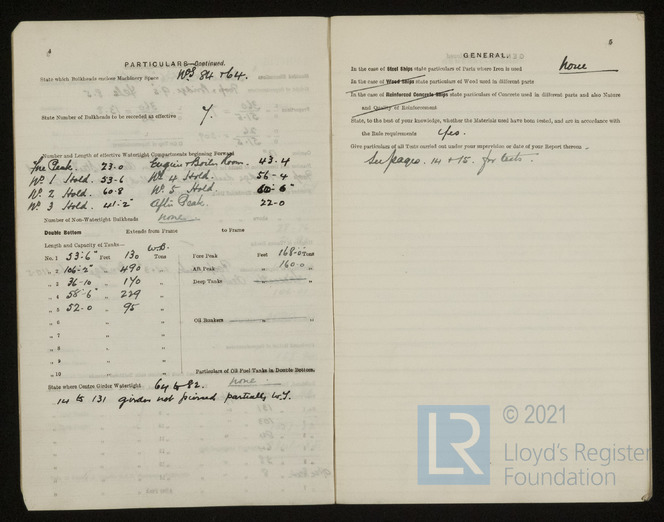 4
PARTICULARS—Continued.
State which Bulkheads enclose Machinery Space Nos 84 + 64.
State Number of Bulkheads to be recorded as effective 7.
Number and Length of effective Watertight Compartments beginning Forward
Fore Peak. 23-0 Engine & Boiler Room. 43-4
No 1 Hold. 53-6 No 4 Hold. 56-4
No 2 Hold. 60-8 No 5 Hold.
No 3 Hold. 41-2" After Peak. 22-0
Number of Non-Watertight Bulkheads none
Double Bottom Extends from Frame to Frame
Length and Capacity of Tanks— W.B.
No. 1 53'-6" Feet 130 Tons Fore Peak Feet 168-0 Tons
„ 2 106-2" „ 490 „ Aft Peak „ 160-0 „
„ 3 36-10 „ 170 „ Deep Tanks „ „
„ 4 58'-6" „ 229 „
„ 5 52-0 „ 95 „
„ 6 „ „ Oil Bunkers „ „
„ 7 „ „
„ 8 „ „
„ 9 „ „
„ 10 „ „ Particulars of Oil Fuel Tanks in Double Bottom.
State where Centre Girder Watertight 64 to 82. none
14 to 131 girder not pierced partially W.T.
5
GENERAL.
In the case of Steel Ships state particulars of Parts where Iron is used none
In the case of Wood Ships state particulars of Wood used in different parts
In the case of Reinforced Concrete Ships state particulars of Concrete used in different parts and also Nature
and Quality of Reinforcement
State, to the best of your knowledge, whether the Materials used have been tested, and are in accordance with
the Rule requirements Yes.
Give particulars of all Tests carried out under your supervision to date of your Report thereon –
See pages. 14 + 15. for tests.
LR
© 2021
Lloyd's Register
Foundation